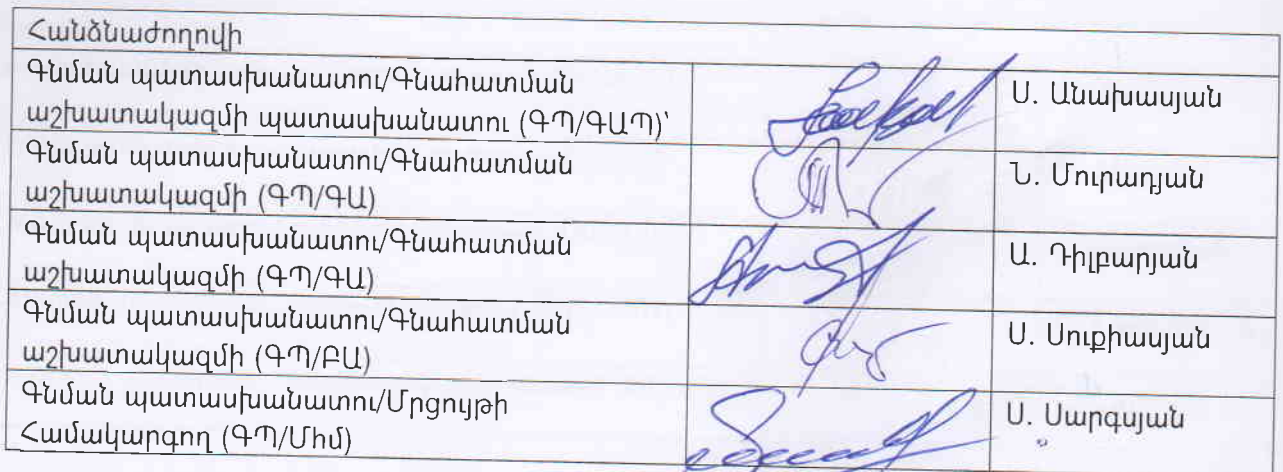 Հանձնաժողովի
Գնման պատասխանատու/Գնահատման
աշխատակազմի պատասխանատու (ԳՊ/ԳԱՊ)՝
Ս. Անախասյան
Գնման պատասխանատու/Գնահատման
աշխատակազմի (ԳՊ/ԳԱ)
Ն. Մուրադյան
Գնման պատասխանատու/Գնահատման
աշխատակազմի (ԳՊ/ԳԱ)
Ա. Դիլբարյան
Գնման պատասխանատու/Գնահատման
աշխատակազմի (ԳՊ/ԲԱ)
Ս. Սուքիասյան
Գնման պատասխանատու/Մրցույթի
Համակարգող (ԳՊ/Միմ)
Ս. Սարգսյան